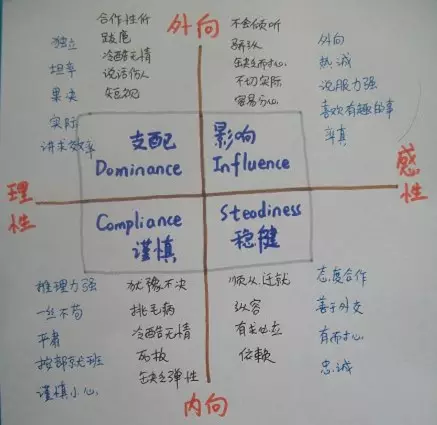 外向
独立
坦率
果决
实际
讲求效率
合作性低
跋扈
冷酷无情
说话伤人
短视
不会倾听
骄纵
缺乏耐心
不切实际
容易分心
外向
热诚
说服力强
喜欢有趣的事
率真
支配
Dominance
影响
Influence
理性
感性
Compliance
谨慎
Steadiness
稳健
推理力强
一丝不苟
严肃
按部就班
谨慎小心
犹豫不决
挑毛病
冷酷无情
死板
缺乏弹性
顺从.迁就
纵容
态度合作
善于外交
有耐心
忠诚
内向